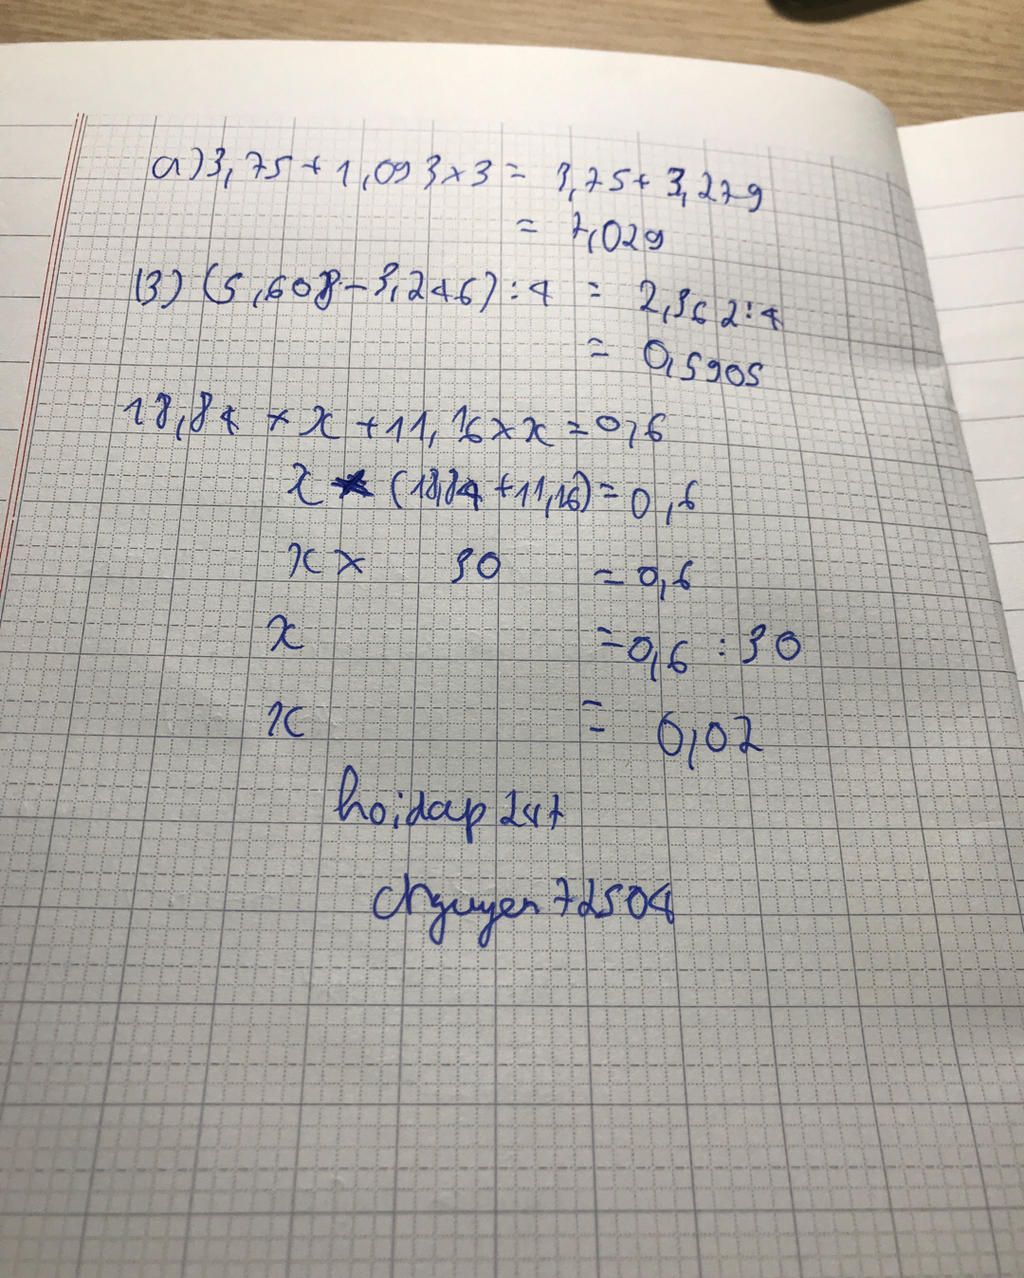 a) 3,75 + 1,093 x 3 = 3,75 + 3,279
= 7,029
B) (5,608 - 3,246) : 4 = 2,362 : 4
= 0,5905
18,84 x x + 11,16 x x = 0,6
x x (18,84 + 11,16) = 0,6
x x 30 = 0,6
x = 0,6 : 30
x = 0,02
hoidap 247
Nguyen 72504